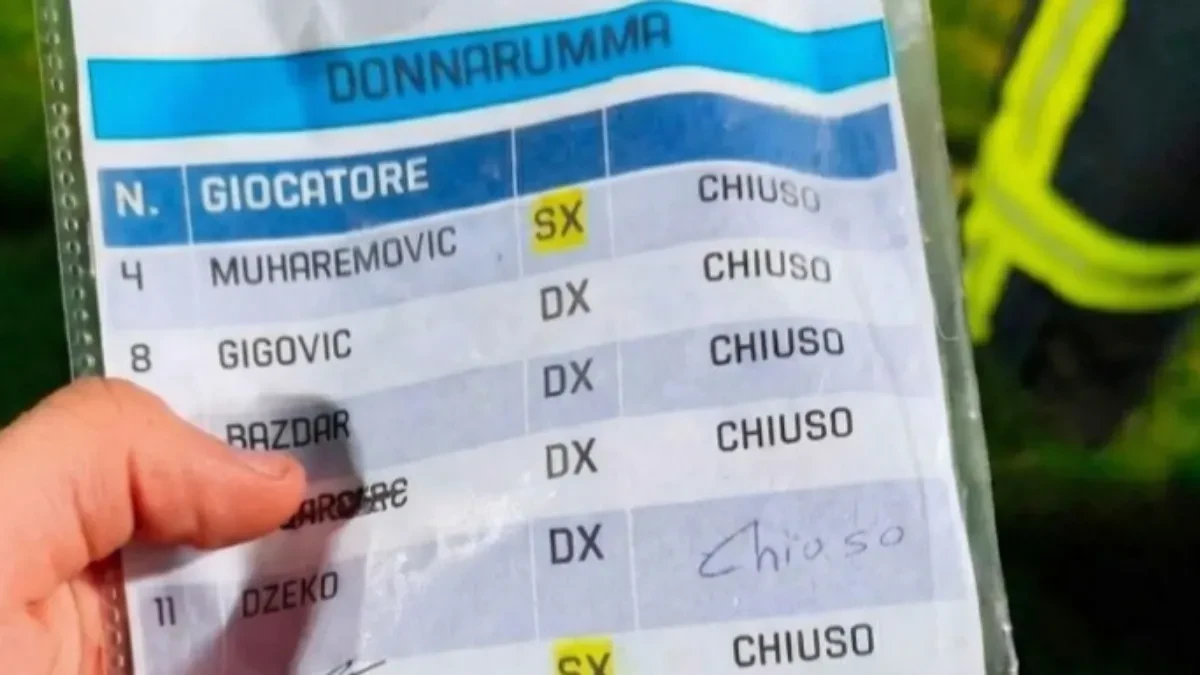 DONNARUMMA
N. GIOCATORE
4 MUHAREMOVIC SX CHIUSO
8 GIGOVIC DX CHIUSO
BAZDAR DX CHIUSO
DX CHIUSO
11 DZEKO DX Chiuso
SX CHIUSO